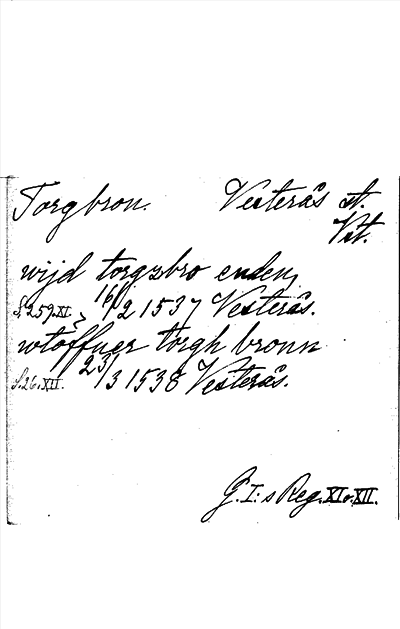 Torgbron. Vesterås st.
Vst.
wijd torgzbro enden,
S. 259. XI. 16/2 1537 Vesterås.
wtöffuer torgh bronn
S. 26. XII. 23/3 1538 Vesterås.
G. I:s Reg. XI o. XII.